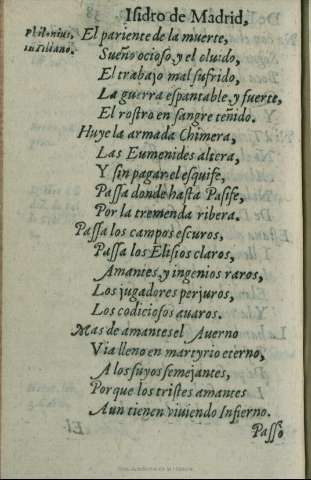 Isidro de Madrid,
Philonius,
in Tiliano.
El pariente de la muerte,
Sueño ocioso, y el oluido,
El trabajo mal sufrido,
La guerra espantable y fuerte,
El rostro en sangre teñido.
Huye la armada Chimera,
Las Eumenides altera,
Y sin pagar el esquife,
Passa donde hasta Pasife,
Por la tremenda ribera.
Passa los campos escuros,
Passa los Elisios claros,
Amantes, y ingenios raros,
Los jugadores perjuros,
Los codiciosos auaros.
Mas de amantes el Auerno
Via lleno en martyrio eterno,
A los suyos semejantes,
Porque los tristes amantes
Aun tienen viuiendo Infierno.
Passò